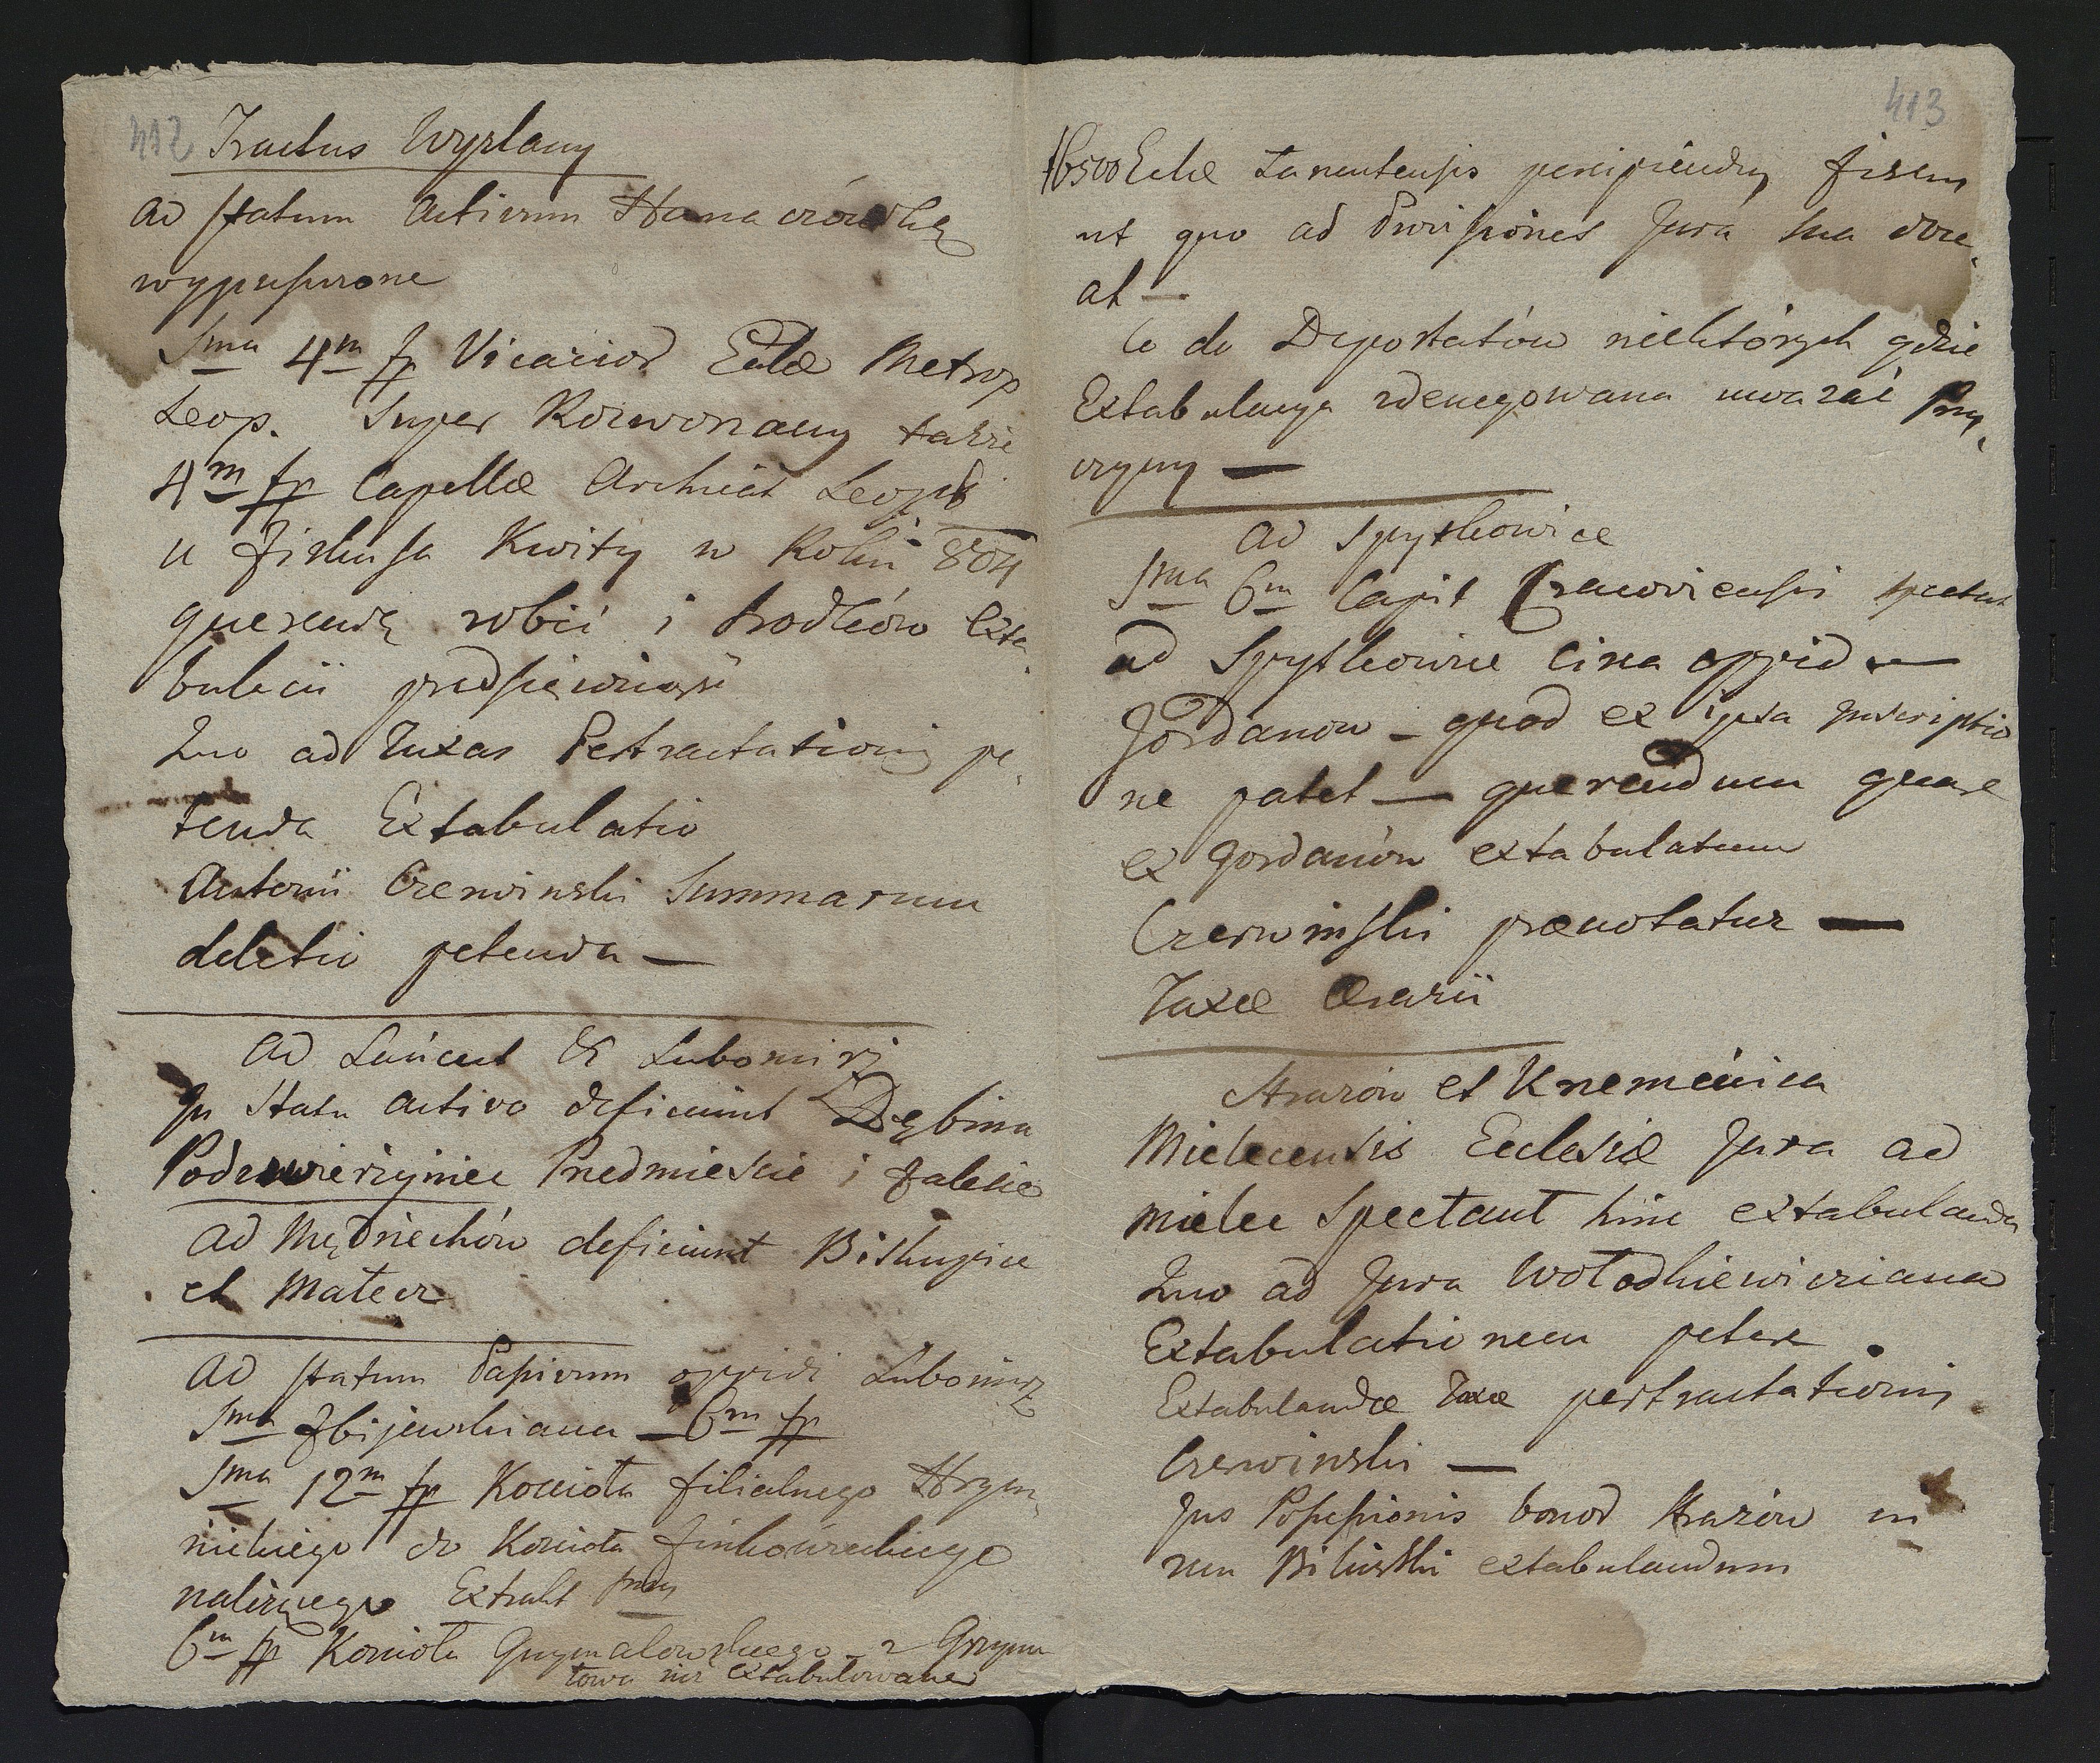 412
Tractus Wyrlany
ad statum Activum Hanaczówkę
wypuszczone
Sma 4m fp Vicarior Eclæ Metrop
Leop. Super Rozworzany także
4m fp Capellæ Archicat Leopol
u Fiskusa Kwity w Roku 804
querendę robić i środków Exta,
bulacii przedsięwziąść
Quo ad Taxas Pertractationis pe,
tenda Extabulatio
Antonii Czerwinski Summarum
deletio petenda —
ad Łańcut & Lubomirz
In Statu Activo deficiunt Dębina
Podzwierzyniec Predmieście i Zalesie
ad Mędrzechów deficiunt Biskupice
et Matecz
ad statum Passivum oppidi Lubomirz
Sma Zbijewskiana — 6m fp
Sma 12m fp Kościoła filialnego Hrym,
nickiego do Kościoła Jinkowieckiego
należącego Extrakt
6m fp Kościoła Grzymałowskiego z Grzyma
łowa nie extabulowane
413
16500 Eclæ Lancutensis percipiendry fiscum
ut quo ad Provisiones Jura sua doce,
at —
Co do Deportatów niektórych gdzie
Extabulacya zdenegowana uważać Przy,
czyny —
ad Spytkowice
Sma 6m Capit Cracoviensis spectat
ad Spytkowice circa oppid
Jordanow — quod ex ipsa Inscriptio
ne patet — querendum quare
ex Jordanów extabulatum
Czerwinski prænotatur —
Taxæ Ærarii
Hrazów et Kremenica
Mielecensis Eclesiæ Jura ad
Mielec Spectant hinc extabulanda
Quo ad Jura Wołodkiewicziana
Extabulationem petere
Extabulandæ Taxæ pertractationis
Czerwinski —
Jus Possessionis bonor Hrazów in
rem Biliński extabulandum